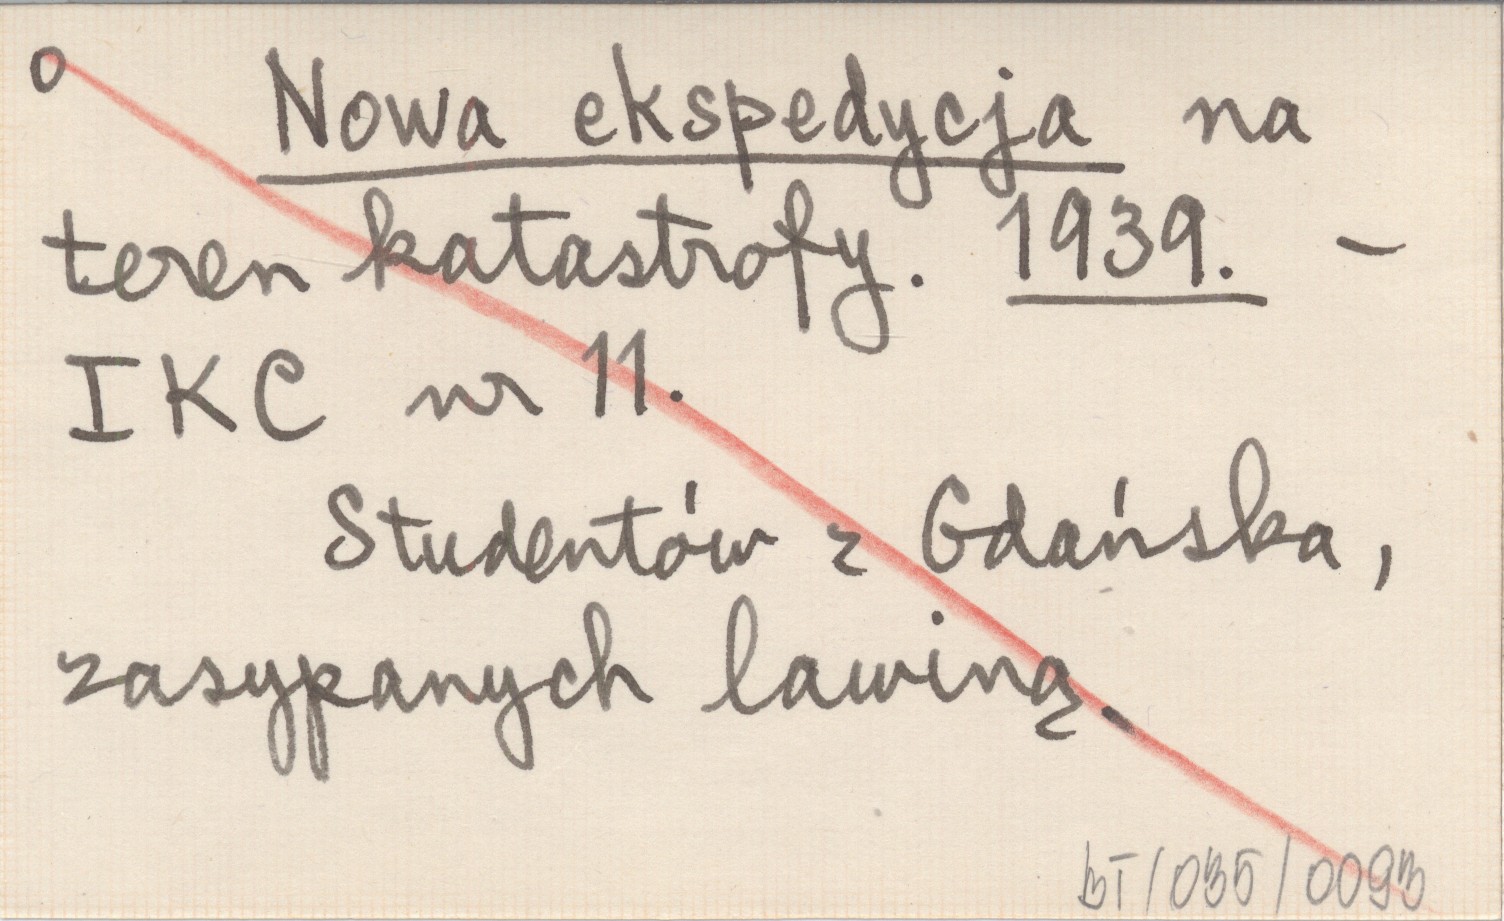 o Nowa ekspedycja na
teren katastrofy. 1939. -
IKC nr 11.
Studentów z Gdańska,
zasypanych lawiną.
BT/035/0093